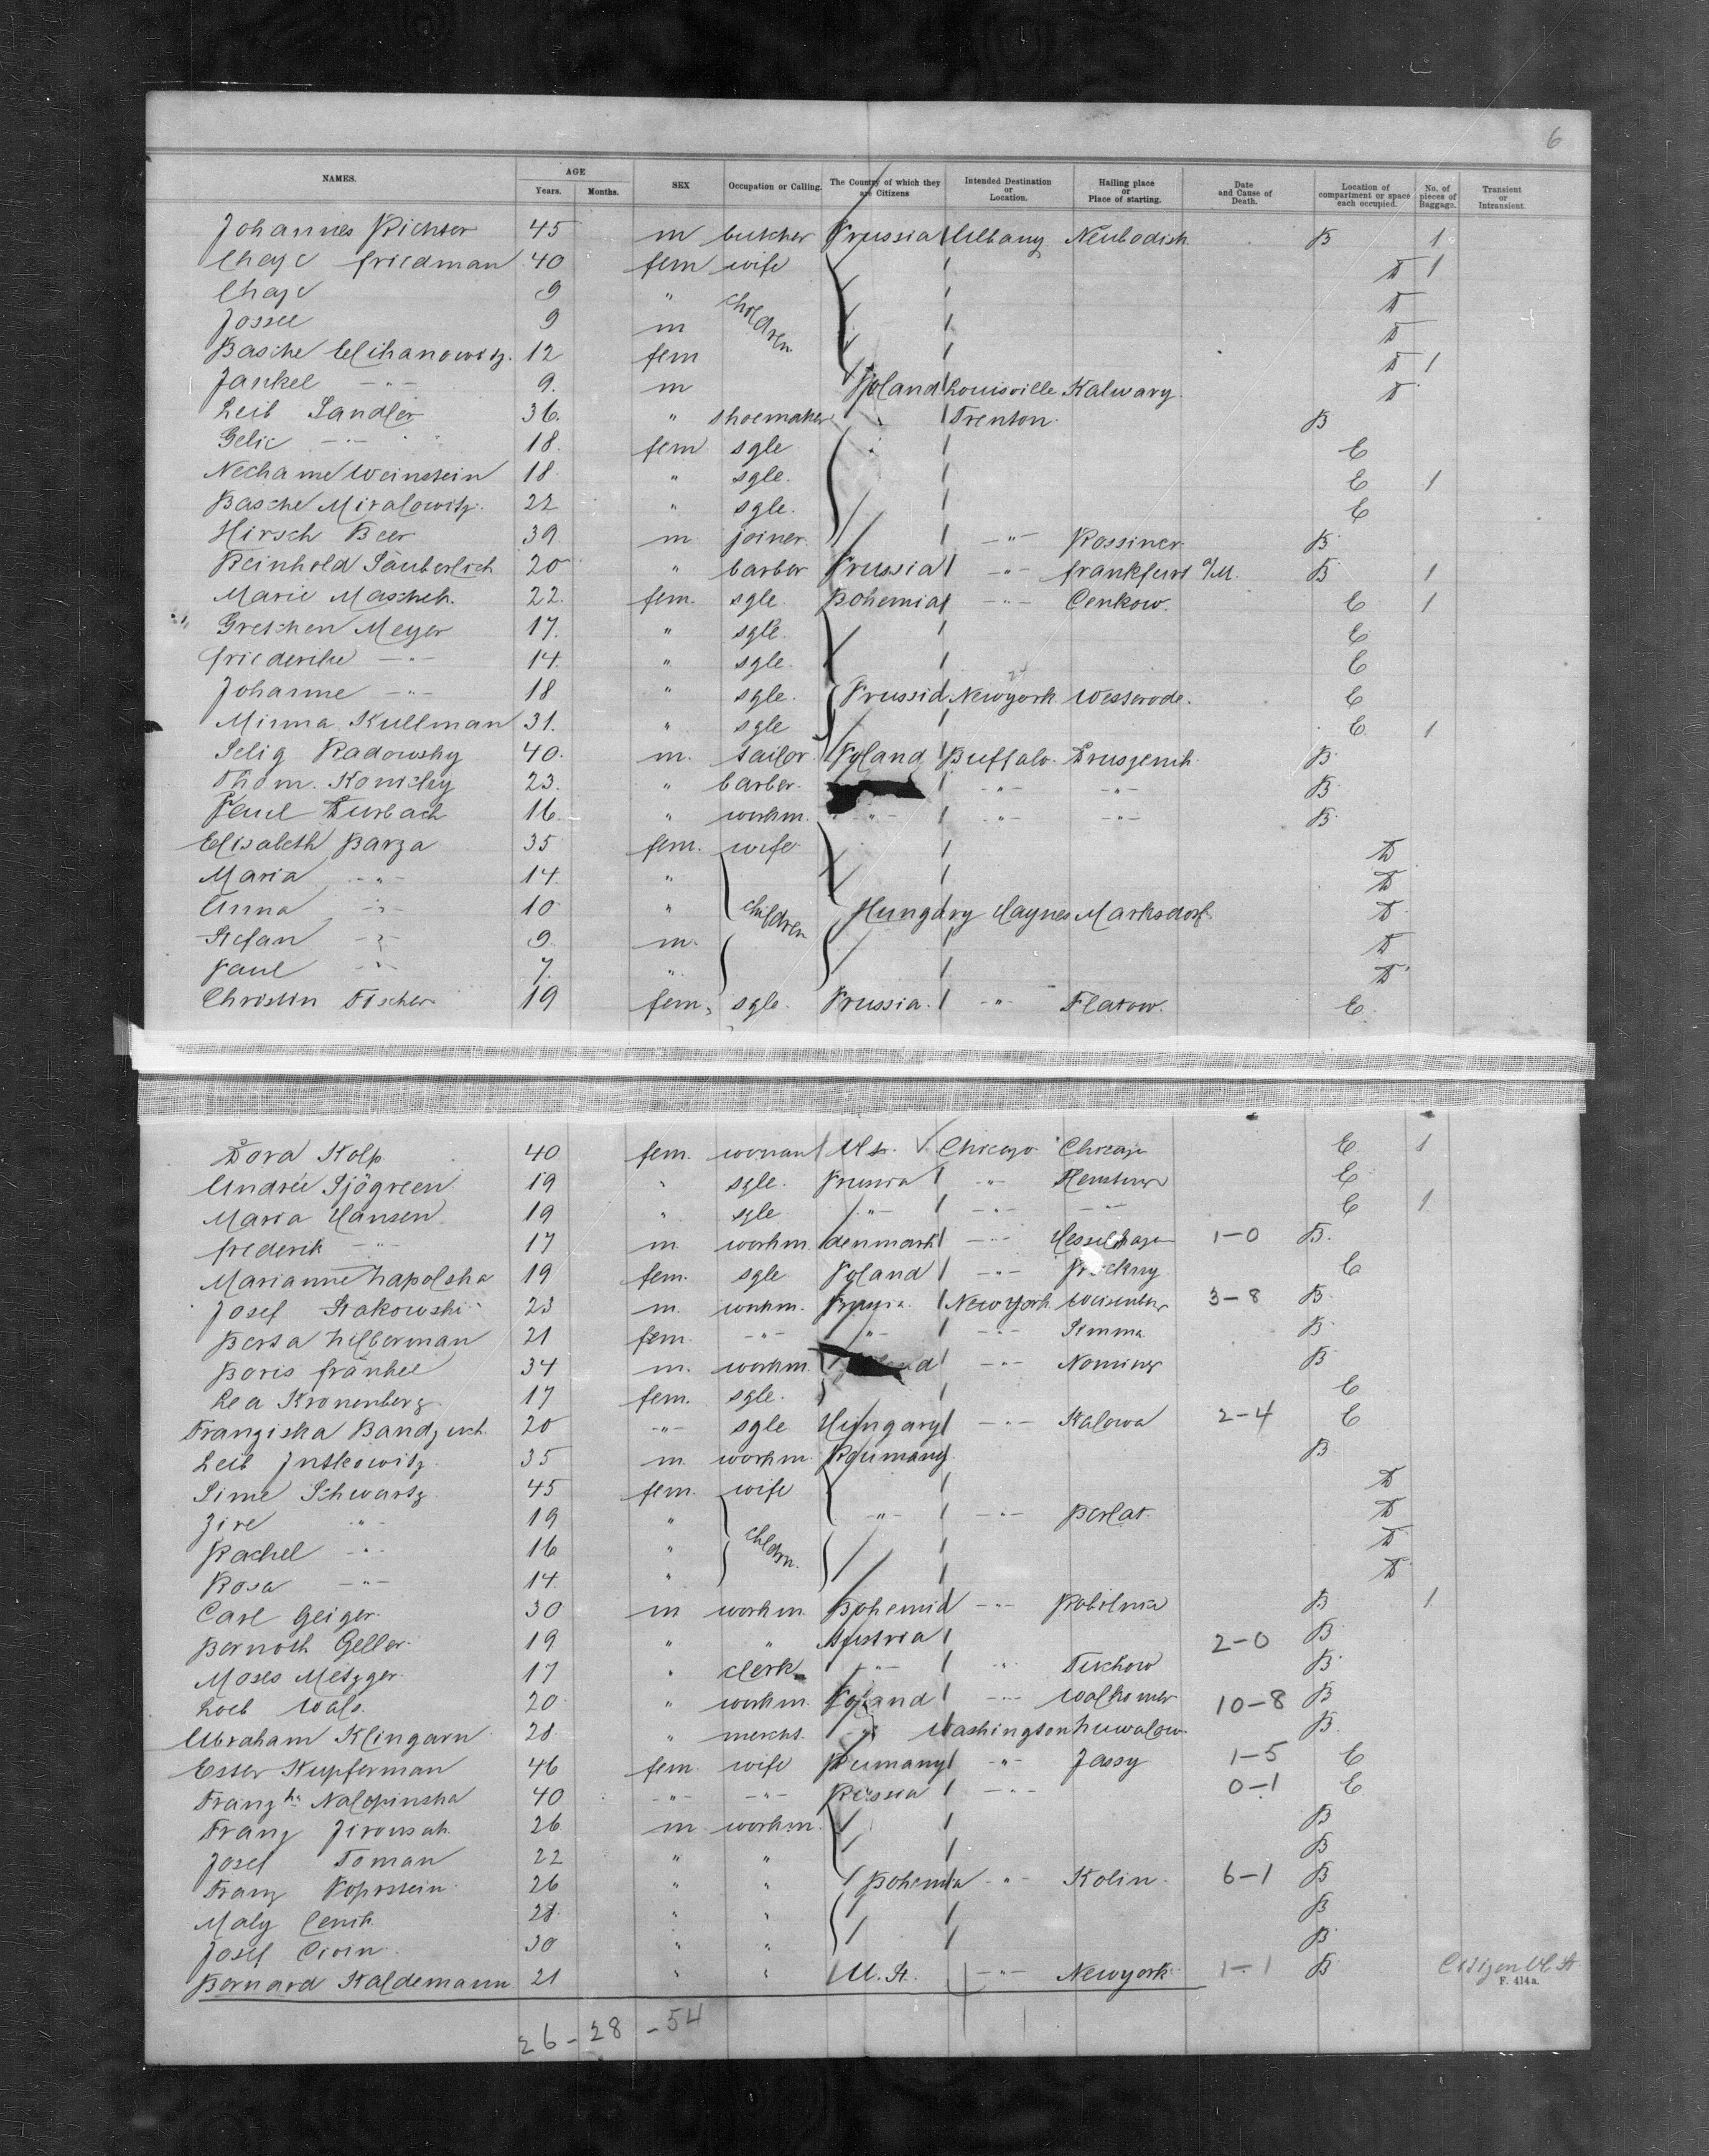 6
NAMES. AGE Years. Months. SEX Occupation or Calling. The Country of which they are Citizens Intended Destination or Location. Hailing place or Place of starting. Date and Cause of Death. Location of compartment or space each occupied. No. of pieces of Baggage. Transient or Intransient.
Johannes Richter 45 m butcher Prussia Albany B 1
Chaje friedman 40 fem wife D 1
Chaje 9 " children D
Jossel 9 m D
Basche 12 fem D 1
Jankel -"- 9. m Poland Louisville Kalwary. D
Leib Sandler 36. " shoemaker Trenton. B
Gelie -"- 18. fem sgle E
Nechame Weinstein 18. " sgle. E 1
Basche Miralowitz. 22 " sgle. E
Hirsch Beer 39 m joiner. -"- Rossiner B
Reinhold Säuberlich 20 " barber Prussia -"- frankfurt a/M. B 1
Marie Maschek. 22. fem. sgle. Bohemia -"- Cenkow. E 1
Gretchen Meyer 17. " sgle. E
friederike -"- 14. " sgle. E
Johanne -"- 18 " sgle. Prussia Newyork Westerode. E
Minna Kullman 31. " sgle E 1
Selig Radowsky 40. m. tailor Poland Buffalo B
Thom. 23. " barber. -"- -"- B
Paul Durbach 16 " workm. -"- -"- -"- B
Elisabeth Barza 35 fem. wife D
Maria -"- 14. " D
Anna -"- 10 " children Hungary Haynes Marksdorf. D
Stefan -"- 9. m. D
Paul -"- 7. " D
Christin Fischer 19 fem. sgle. Prussia. -"- Flatow. E
Dora Kolp 40 fem. woman U St. Chicago Chicago E 1
Andrée Sjögreen 19 " sgle. Prussia -"- E
Maria Hansen 19 " sgle -"- -"- -"- E 1
frederik -"- 17 m. workm. denmark -"- 1-0 B.
Marianne Zapolska 19 fem. sgle Poland -"- E
Josef Stakowski 23 m. workm. Prussia. New York 3-8 B.
Berta Zilberman 21 fem. -"- -"- -"- Simma. B
Boris fränkel 34 m. workm. -"- B
Lea Kronenberg. 17 fem. sgle. E
Franziska 20 -"- sgle Hungary -"- Kalowa 2-4 E
Leib Jutkowitz. 35 m workm. Roumany. B
Sime Schwartz 45 fem. wife D
Jire -"- 19 " children. -"- -"- Berlat. D
Rachel -"- 16 " D
Rosa -"- 14. " D
Carl Geiger. 30 m workm. Bohemia -"- B 1
Bernoth Geller. 19 " " Austria 2-0 B
Moses Metzger. 17 " clerk -"- " Tuchow B
Loeb 20 " workm. Poland -"- 10-8 B
Abraham Klingarn 28 " mercht. -"- Washington B.
Ester Kupferman 46 fem. wife Rumany -"- Jassy 1-5 E
Franzka Nalopinska 40 -"- -"- Russia -"- 0-1 E
Franz Jirousek 26 m workm. B
Josef Toman 22 " " B
Franz 26 " " Bohemia -"- Kolin. 6-1 B
Maly Cenik 28 " " B
Josef 30 " " B
Bernard Kaldemann 21 " " U. St. -"- Newyork 1-1 B Citizen U St
F. 414a.
26 - 28 - 54